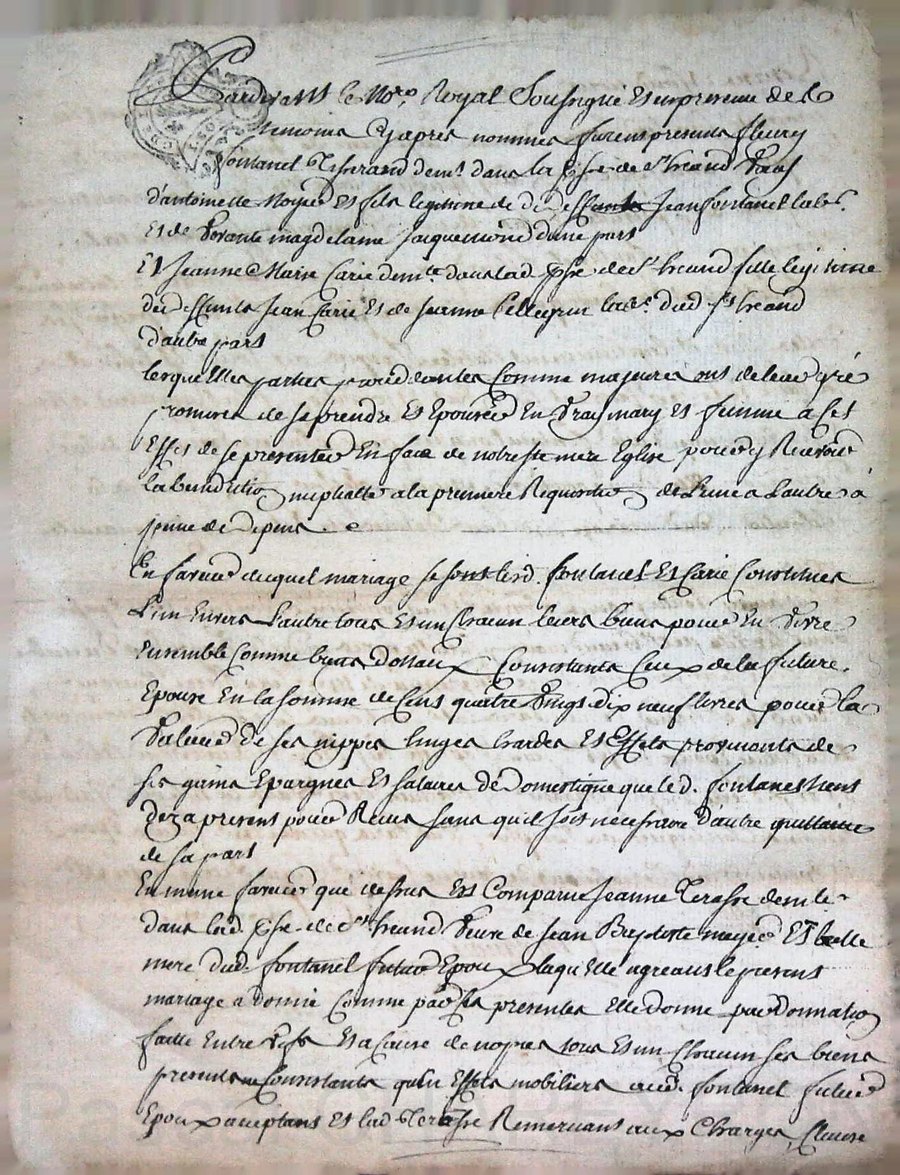 Pardevant le No.re Royal Sousigné Et en presence de
temoins Cyapres nommés furent presents fleury
fontanel tisserand dem.t dans la psse de St heand Veuf
d'antoinette Et fils legitime de de deffunts Jean fontanel lab.r
Et de Vivante magdelaine Jacquemond d'une part
Et Jeanne Marie Carié dem.te dans lad psse de St heand fille legitime
de deffunts Jean Carié Et de Jeanne Pellegrin lab.r dud St heand
d'autre part
lesquelles parties procedantes Comme majeures ont de leur gré
promirer de se prendre Et Epouser En Vray mary Et femme a Cet
Effet de se presenter En face de notre ste mere Eglise pour y Recevoir
la benediction nuptialle a la premiere Requisition de L'une a L'autre a
peine de depens
En faveur duquel mariage se sont lesd. fontanel Et Carié Constitués
L'un Envers L'autre tous Et un Chacun leurs biens pour En Vivre
Ensemble Comme biens dottaux Consistants Ceux de la future
Epouse En la somme de Cent quatre Vingt dix neuf livres pour la
Valeur de ses nippes linges hardes Et Effets provenants de
ses gains Epargnes Et salaires de Domestique que led. fontanel tient
deza present pour Reçus sans qu'il soit necessaire d'autre quittance
de sa part
En meme faveur que dessus Est Comparue Jeanne terasse dem.te
dans lad. psse de St heand Veuve de Jean Baptiste Et belle
mere dud. fontanel futur Epoux laquelle agreant le present
mariage a donné Comme par Ces presentes Elle donne par Donnation
faitte Entre Vifs Et a Cause de noces tous Et un Chacun ses biens
presents Consistants qu'en Effets mobiliers aud. fontanel futur
Epoux acceptant Et lad terasse Remerciant aux Charges, Clause